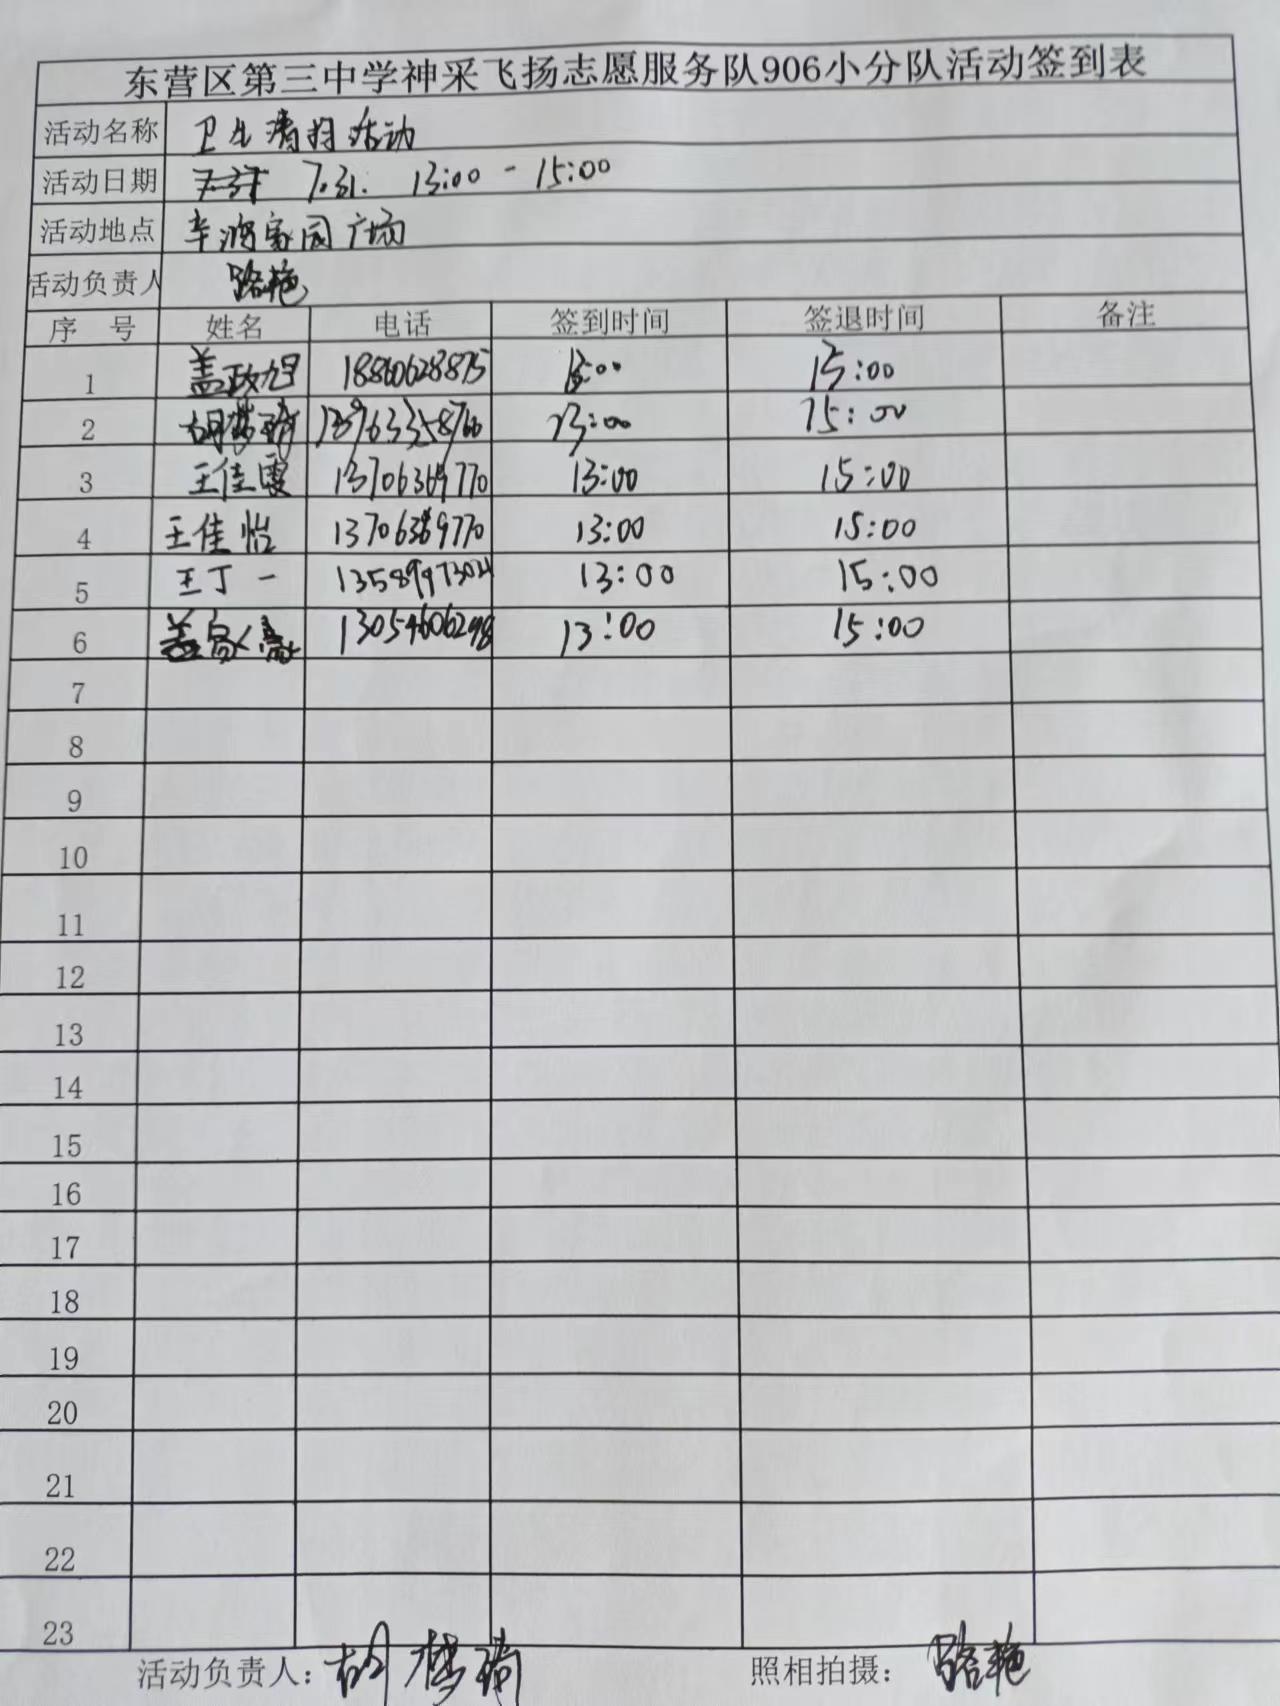 东营区第三中学神采飞扬志愿服务队906小分队活动签到表
活动名称 卫生清扫活动
活动日期 7.31. 13:00 - 15:00
活动地点 家园广场
活动负责人 路艳
序 号 姓名 电话 签到时间 签退时间 备注
1 盖政旭 18860628875 13:00 15:00
2 胡梦琦 13963358766 13:00 15:00
3 王佳雯 13706369770 13:00 15:00
4 王佳怡 13706369770 13:00 15:00
5 王丁一 13589973021 13:00 15:00
6 盖 13054606298 13:00 15:00
7
8
9
10
11
12
13
14
15
16
17
18
19
20
21
22
23
活动负责人：胡梦琦 照相拍摄：路艳